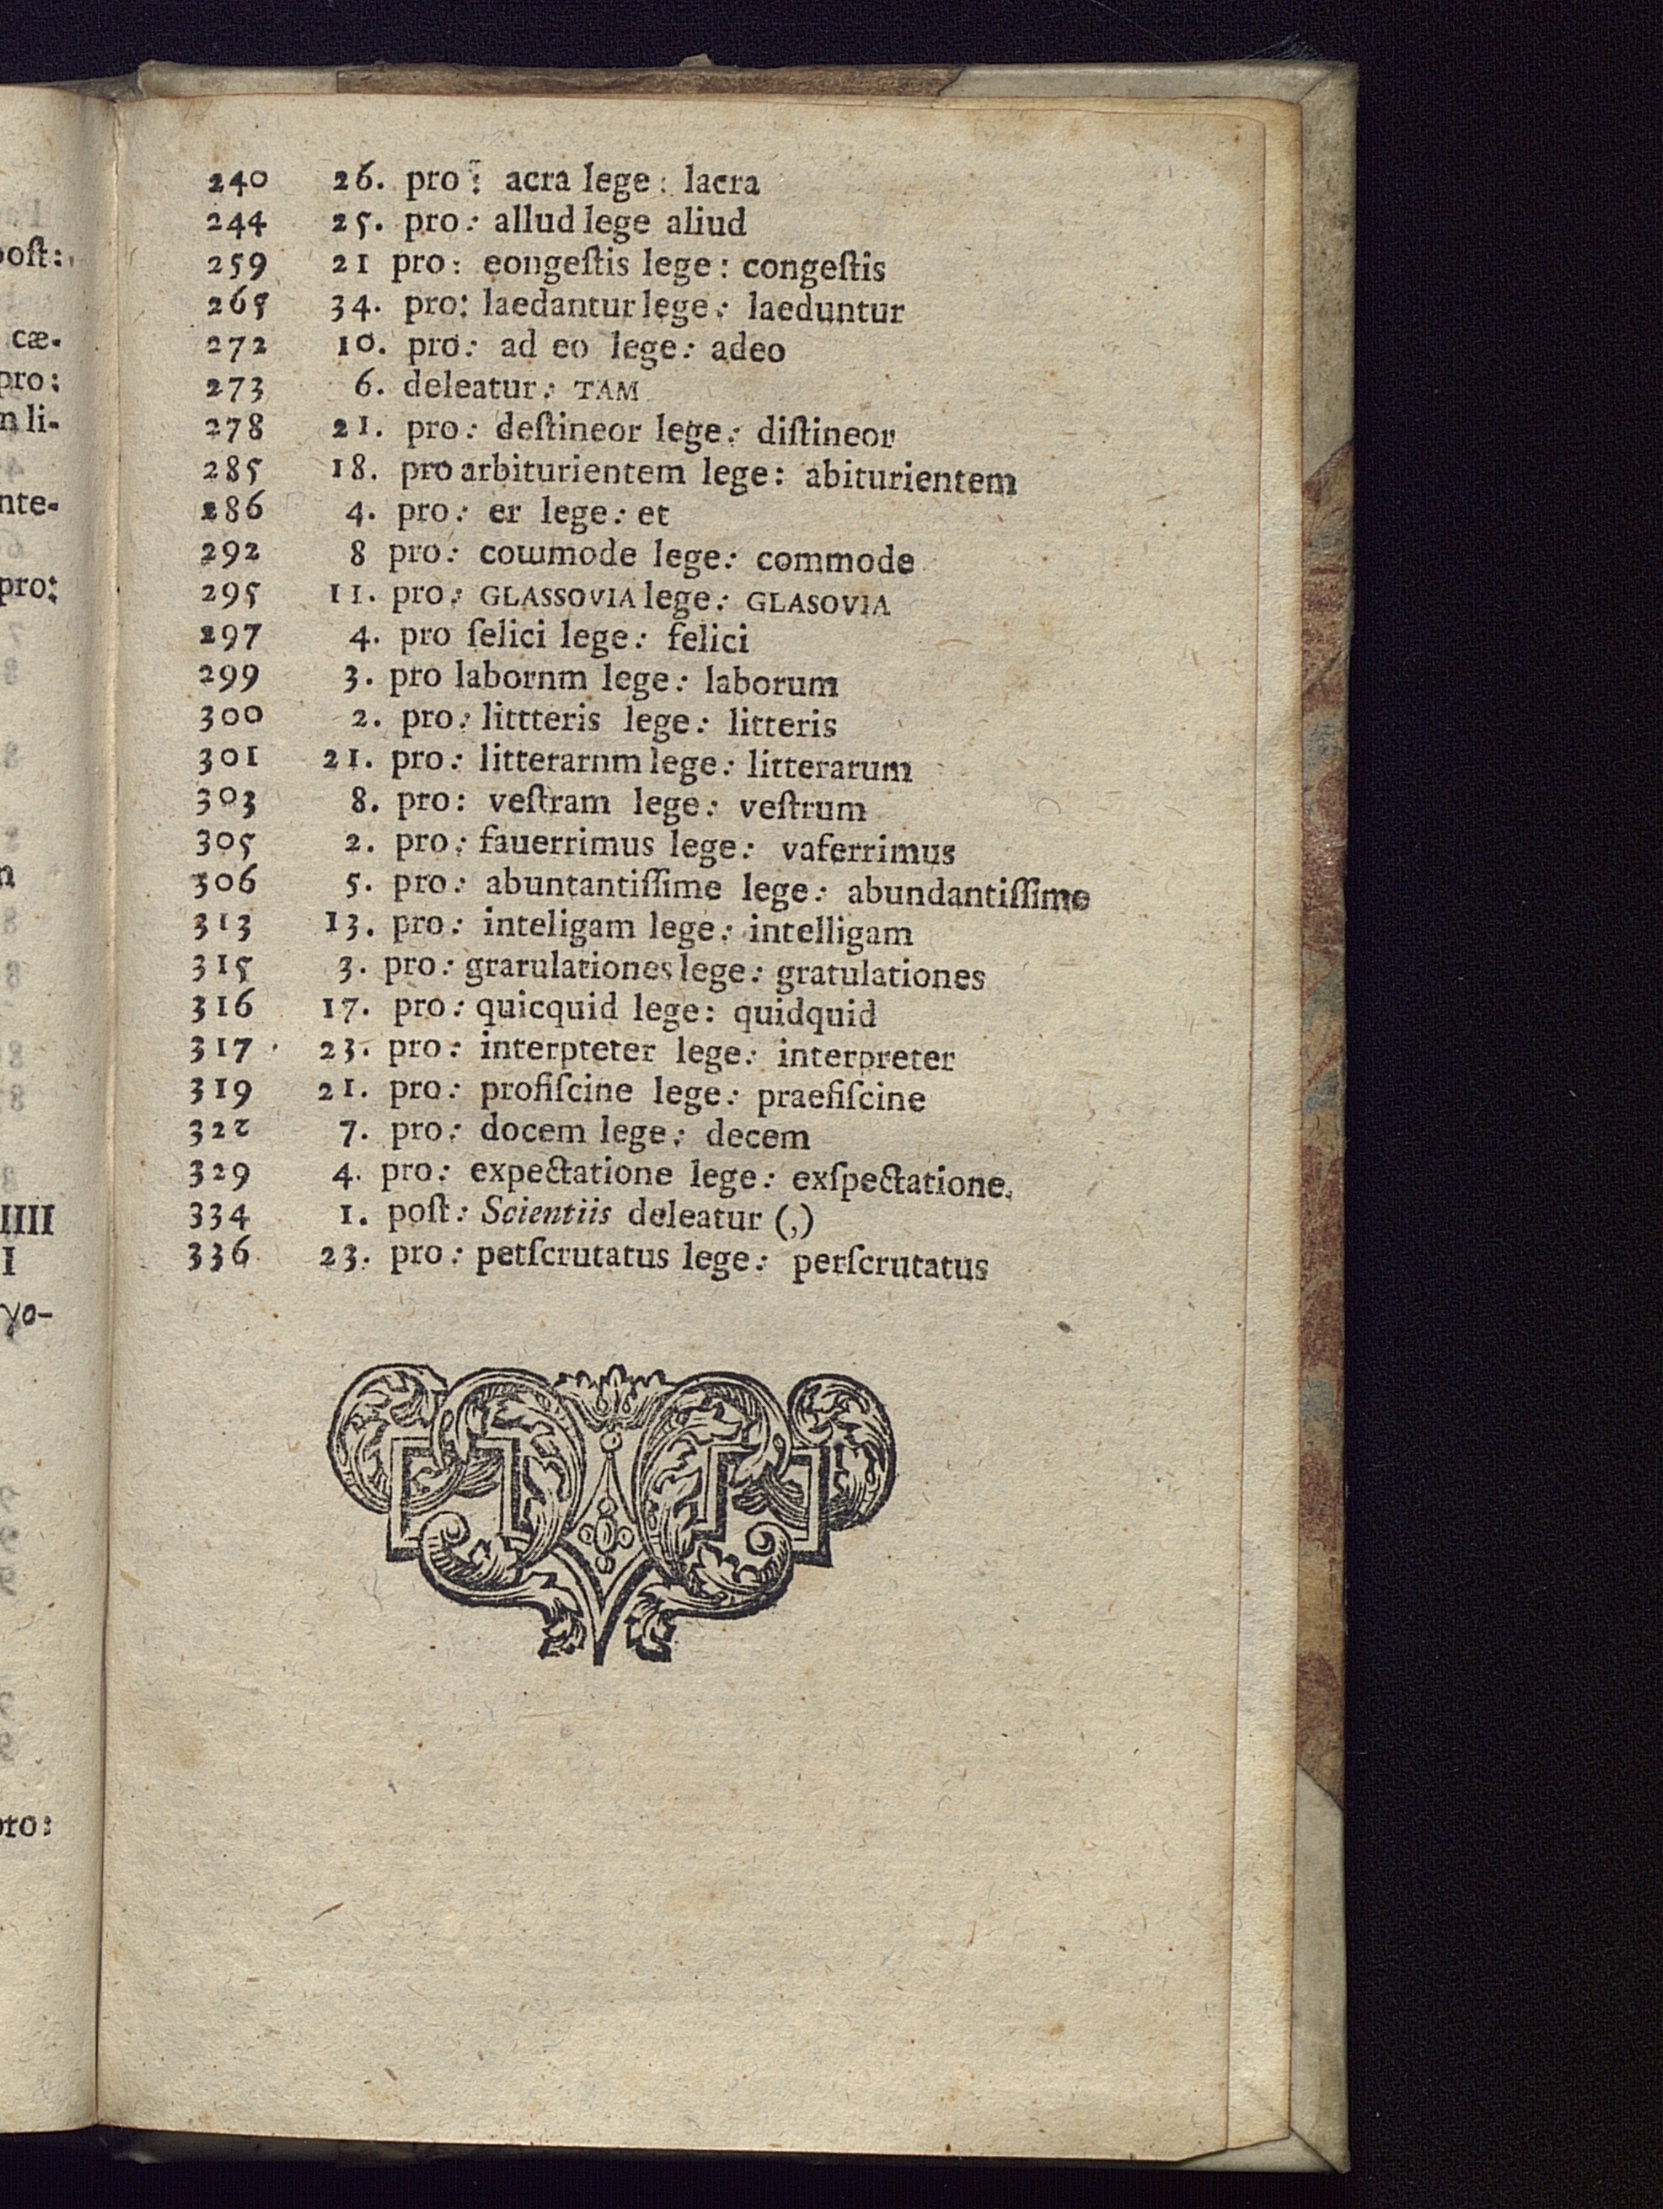 240 26. pro: acra lege: lacra
244 25. pro: allud lege aliud
259 21 pro: eongeſtis lege: congeſtis
265 34. pro: laedantur lege: laeduntur
272 10. pro: ad eo lege: adeo
273 6. deleatur: TAM
278 21. pro: deſtineor lege: diſtineor
285 18. pro arbiturientem lege: abiturientem
286 4. pro: er lege: et
292 8 pro: coɯmode lege: commode
295 11. pro: GLASSOVIA lege: GLASOVIA
297 4. pro ſelici lege: felici
299 3. pro labornm lege: laborum
300 2. pro: littteris lege: litteris
301 21. pro: litterarnm lege: litterarum
303 8. pro: veſtram lege: veſtrum
305 2. pro: fauerrimus lege: vaferrimus
306 5. pro: abuntantiſſime lege: abundantiſſime
313 13. pro: inteligam lege: intelligam
315 3. pro: grarulationes lege: gratulationes
316 17. pro: quicquid lege: quidquid
317 23. pro: interpteter lege: interpreter
319 21. pro: profiſcine lege: praefiſcine
322 7. pro: docem lege: decem
329 4. pro: expectatione lege: exſpectatione.
334 1. poſt: Scientiis deleatur (,)
336 23. pro: petſcrutatus lege: perſcrutatus
poſt:
cæ-
pro:
li-
nte-
pro:
IIII
I
γο-
pro: